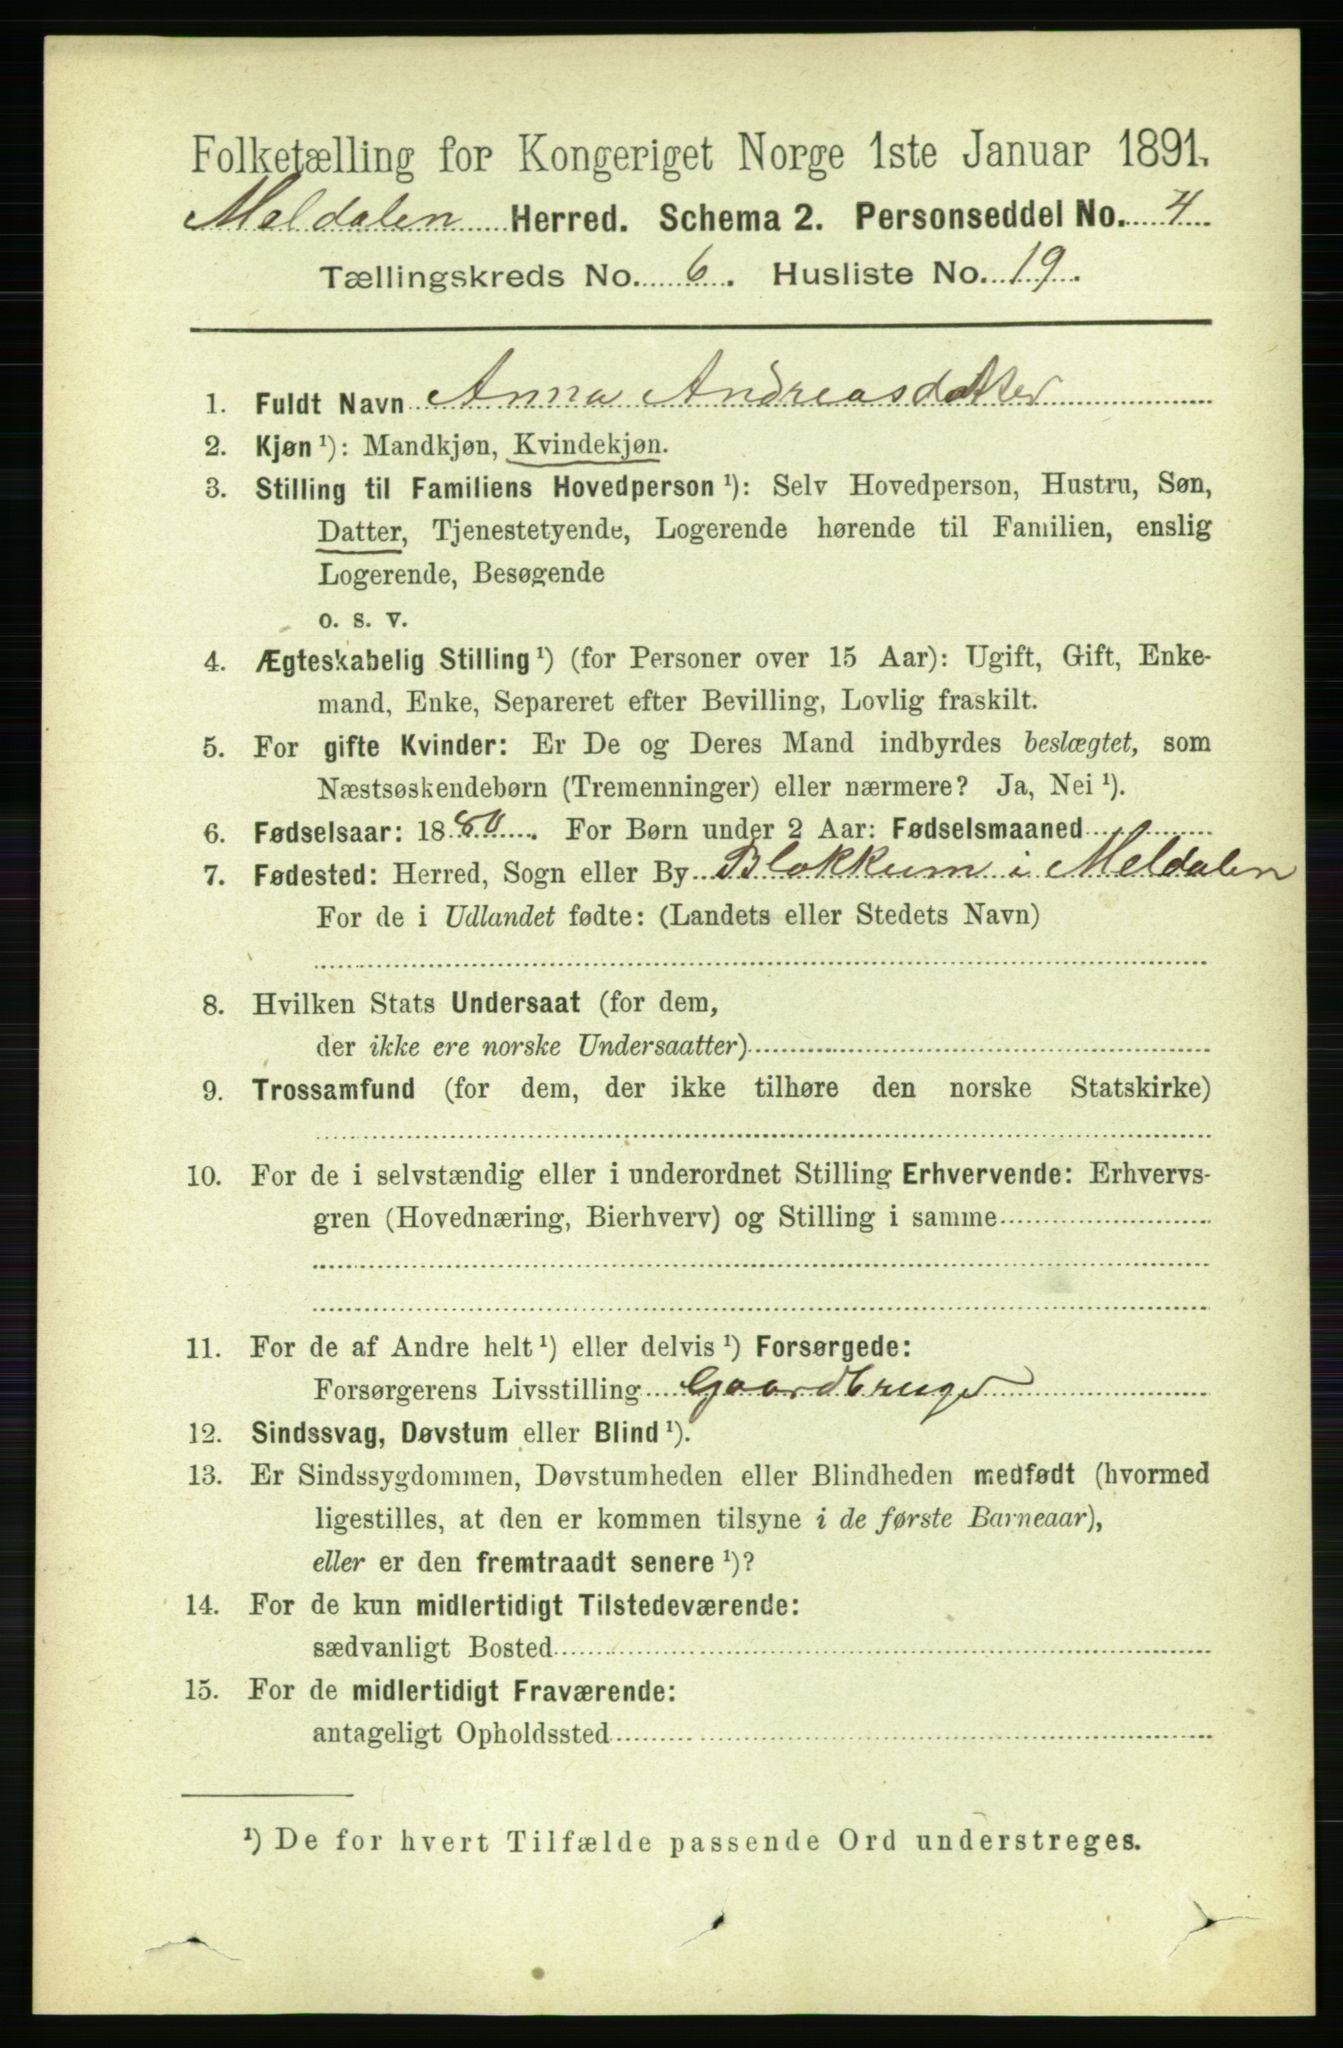 Folketælling for Kongeriget Norge 1ste Januar 1891.
Meldalen Herred. Schema 2. Personseddel No. 4
Tællingskreds No. 6. Husliste No. 19.
1. Fuldt Navn Anna Andreasdatter
2. Kjøn ¹): Mandkjøn, Kvindekjøn.
3. Stilling til Familiens Hovedperson ¹): Selv Hovedperson, Hustru, Søn,
Datter, Tjenestetyende, Logerende hørende til Familien, enslig
Logerende, Besøgende
o. s. v.
4. Ægteskabelig Stilling ¹) (for Personer over 15 Aar): Ugift, Gift, Enke-
mand, Enke, Separeret efter Bevilling, Lovlig fraskilt.
5. For gifte Kvinder: Er De og Deres Mand indbyrdes beslægtet, som
Næstsøskendebørn (Tremenninger) eller nærmere? Ja, Nei ¹).
6. Fødselsaar: 1880. For Børn under 2 Aar: Fødselsmaaned
7. Fødested: Herred, Sogn eller By Blokkum i Meldalen
For de i Udlandet fødte: (Landets eller Stedets Navn)
8. Hvilken Stats Undersaat (for dem,
der ikke ere norske Undersaatter)
9. Trossamfund (for dem, der ikke tilhøre den norske Statskirke)
10. For de i selvstændig eller i underordnet Stilling Erhvervende: Erhvervs-
gren (Hovednæring, Bierhverv) og Stilling i samme
11. For de af Andre helt ¹) eller delvis ¹) Forsørgede:
Forsørgerens Livsstilling Gaardbruger
12. Sindssvag, Døvstum eller Blind ¹).
13. Er Sindssygdommen, Døvstumheden eller Blindheden medfødt (hvormed
ligestilles, at den er kommen tilsyne i de første Barneaar),
eller er den fremtraadt senere ¹)?
14. For de kun midlertidigt Tilstedeværende:
sædvanligt Bosted
15. For de midlertidigt Fraværende:
antageligt Opholdssted
¹) De for hvert Tilfælde passende Ord understreges.